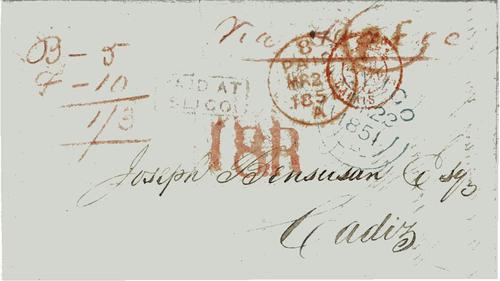 B - 5
F - 10
1/3
Via France
PAID AT
SLIGO
PAID
185
A
PARIS
GO
1851
1RR
Joseph Bensusan Esqr
Cadiz